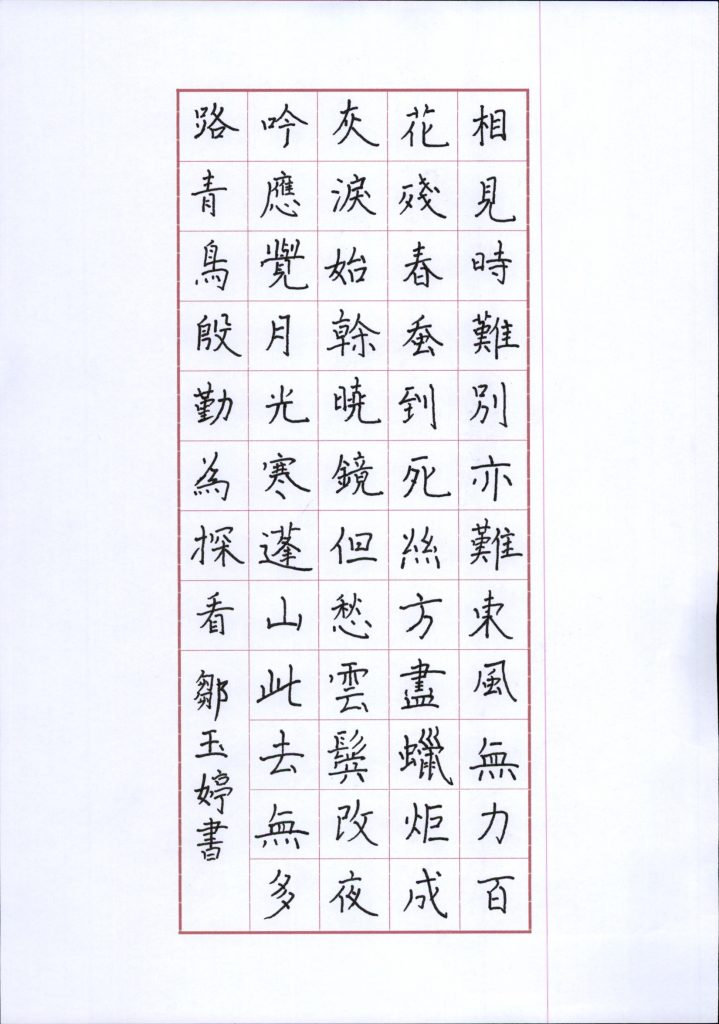 相見時難別亦難東風無力百
花殘春蚕到死絲方盡蠟炬成
灰淚始幹曉鏡但愁雲鬓改夜
吟應覺月光寒蓬山此去無多
路青鳥殷勤為探看
鄒玉婷書